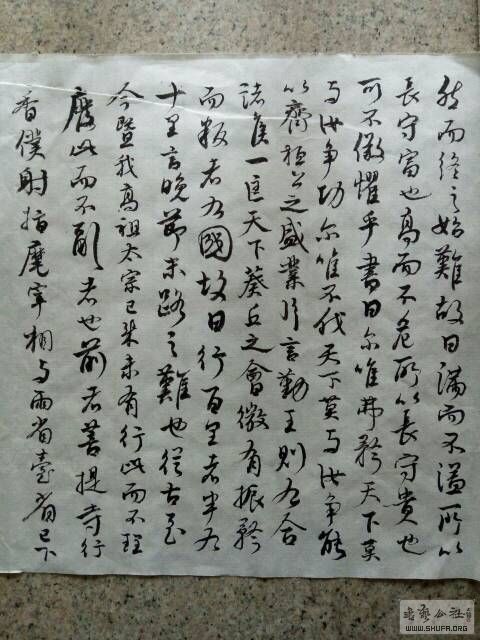 然而終之始難故曰滿而不溢所以
長守富也高而不危所以長守貴也
可不儆懼乎書曰尔唯弗矜天下莫
与汝爭功尔唯不伐天下莫与汝爭能
以齊桓公之盛業片言勤王則九合
諸侯一匡天下葵丘之會微有振矜
而叛者九國故曰行百里者半九
十里言晚節末路之難也從古至
今暨我高祖太宗已來未有行此而不理
廢此而不亂者也前者菩提寺行
香僕射指麾宰相与兩省臺省已下
WWW.SHUFA.ORG